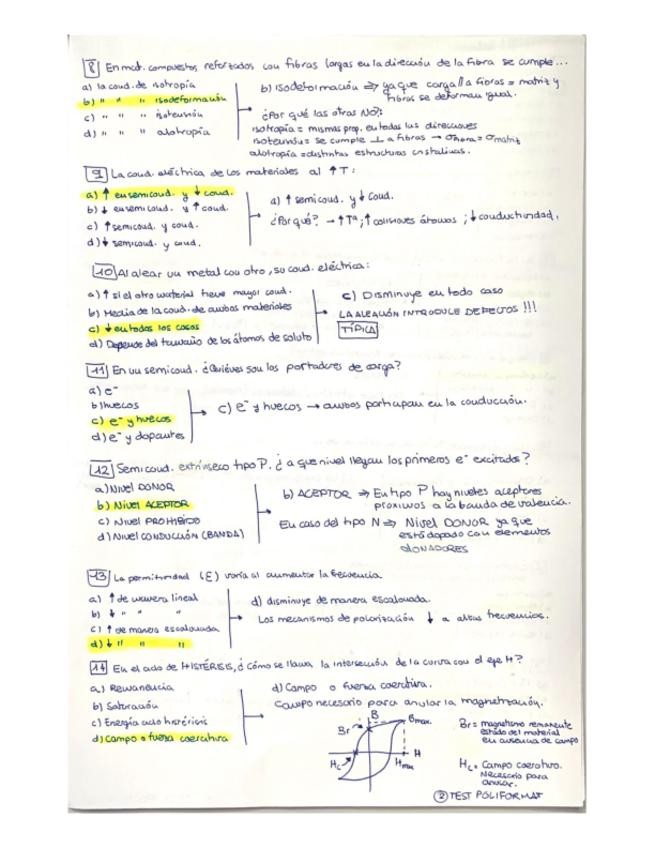 8 En mat. compuestos reforzados con fibras largas en la dirección de la fibra se cumple...
a) la cond. de isotropía
b) " " " isodeformación
c) " " " isotensión
d) " " " alotropía
b) Isodeformación ⇒ ya que carga // a fibras = matriz y
fibras se deforman igual.
¿Por qué las otras NO?:
isotropía = mismas prop. en todas las direcciones
isotensión = se cumple ⊥ a fibras → σfibra = σmatriz
alotropía = distintas estructuras cristalinas.
9 La cond. eléctrica de los materiales al ↑ T:
a) ↑ en semicond. y ↓ cond.
b) ↓ en semicond. y ↑ cond.
c) ↑ semicond. y cond.
d) ↓ semicond. y cond.
a) ↑ semicond. y ↓ cond.
¿Por qué? → ↑Tª; ↑ colisiones átomos; ↓ conductividad.
10 Al alear un metal con otro, su cond. eléctrica:
a) ↑ si el otro material tiene mayor cond.
b) Media de la cond. de ambos materiales
c) ↓ en todos los casos
d) Depende del tamaño de los átomos de soluto
c) Disminuye en todo caso
LA ALEACIÓN INTRODUCE DEFECTOS !!!
TÍPICA
11 En un semicond. ¿Quiénes son los portadores de carga?
a) e⁻
b) huecos
c) e⁻ y huecos
d) e⁻ y dopantes
c) e⁻ y huecos → ambos participan en la conducción.
12 Semicond. extrínseco tipo P. ¿a que nivel llegan los primeros e⁻ excitados?
a) NIVEL DONOR
b) NIVEL ACEPTOR
c) NIVEL PROHIBIDO
d) NIVEL CONDUCCIÓN (BANDA)
b) ACEPTOR ⇒ En tipo P hay niveles aceptores
próximos a la banda de valencia.
En caso del tipo N ⇒ Nivel DONOR ya que
está dopado con elementos
DONADORES
13 La permitividad (ε) varía al aumentar la frecuencia
a) ↑ de manera lineal
b) ↓ " " "
c) ↑ de manera escalonada
d) ↓ " " "
d) disminuye de manera escalonada.
Los mecanismos de polarización ↓ a altas frecuencias.
14 En el ciclo de HISTÉRISIS, ¿cómo se llama la intersección de la curva con el eje H?
a) Remanencia
b) Saturación
c) Energía ciclo histérisis
d) Campo o fuerza coercitiva
d) Campo o fuerza coercitiva.
Campo necesario para anular la magnetización.
B
Bmax.
Br
H
Hc
Hmax
Br = magnetismo remanente
estado del material
en ausencia de campo
Hc = Campo coercitivo.
Necesario para
anular.
② TEST POLIFORMAT